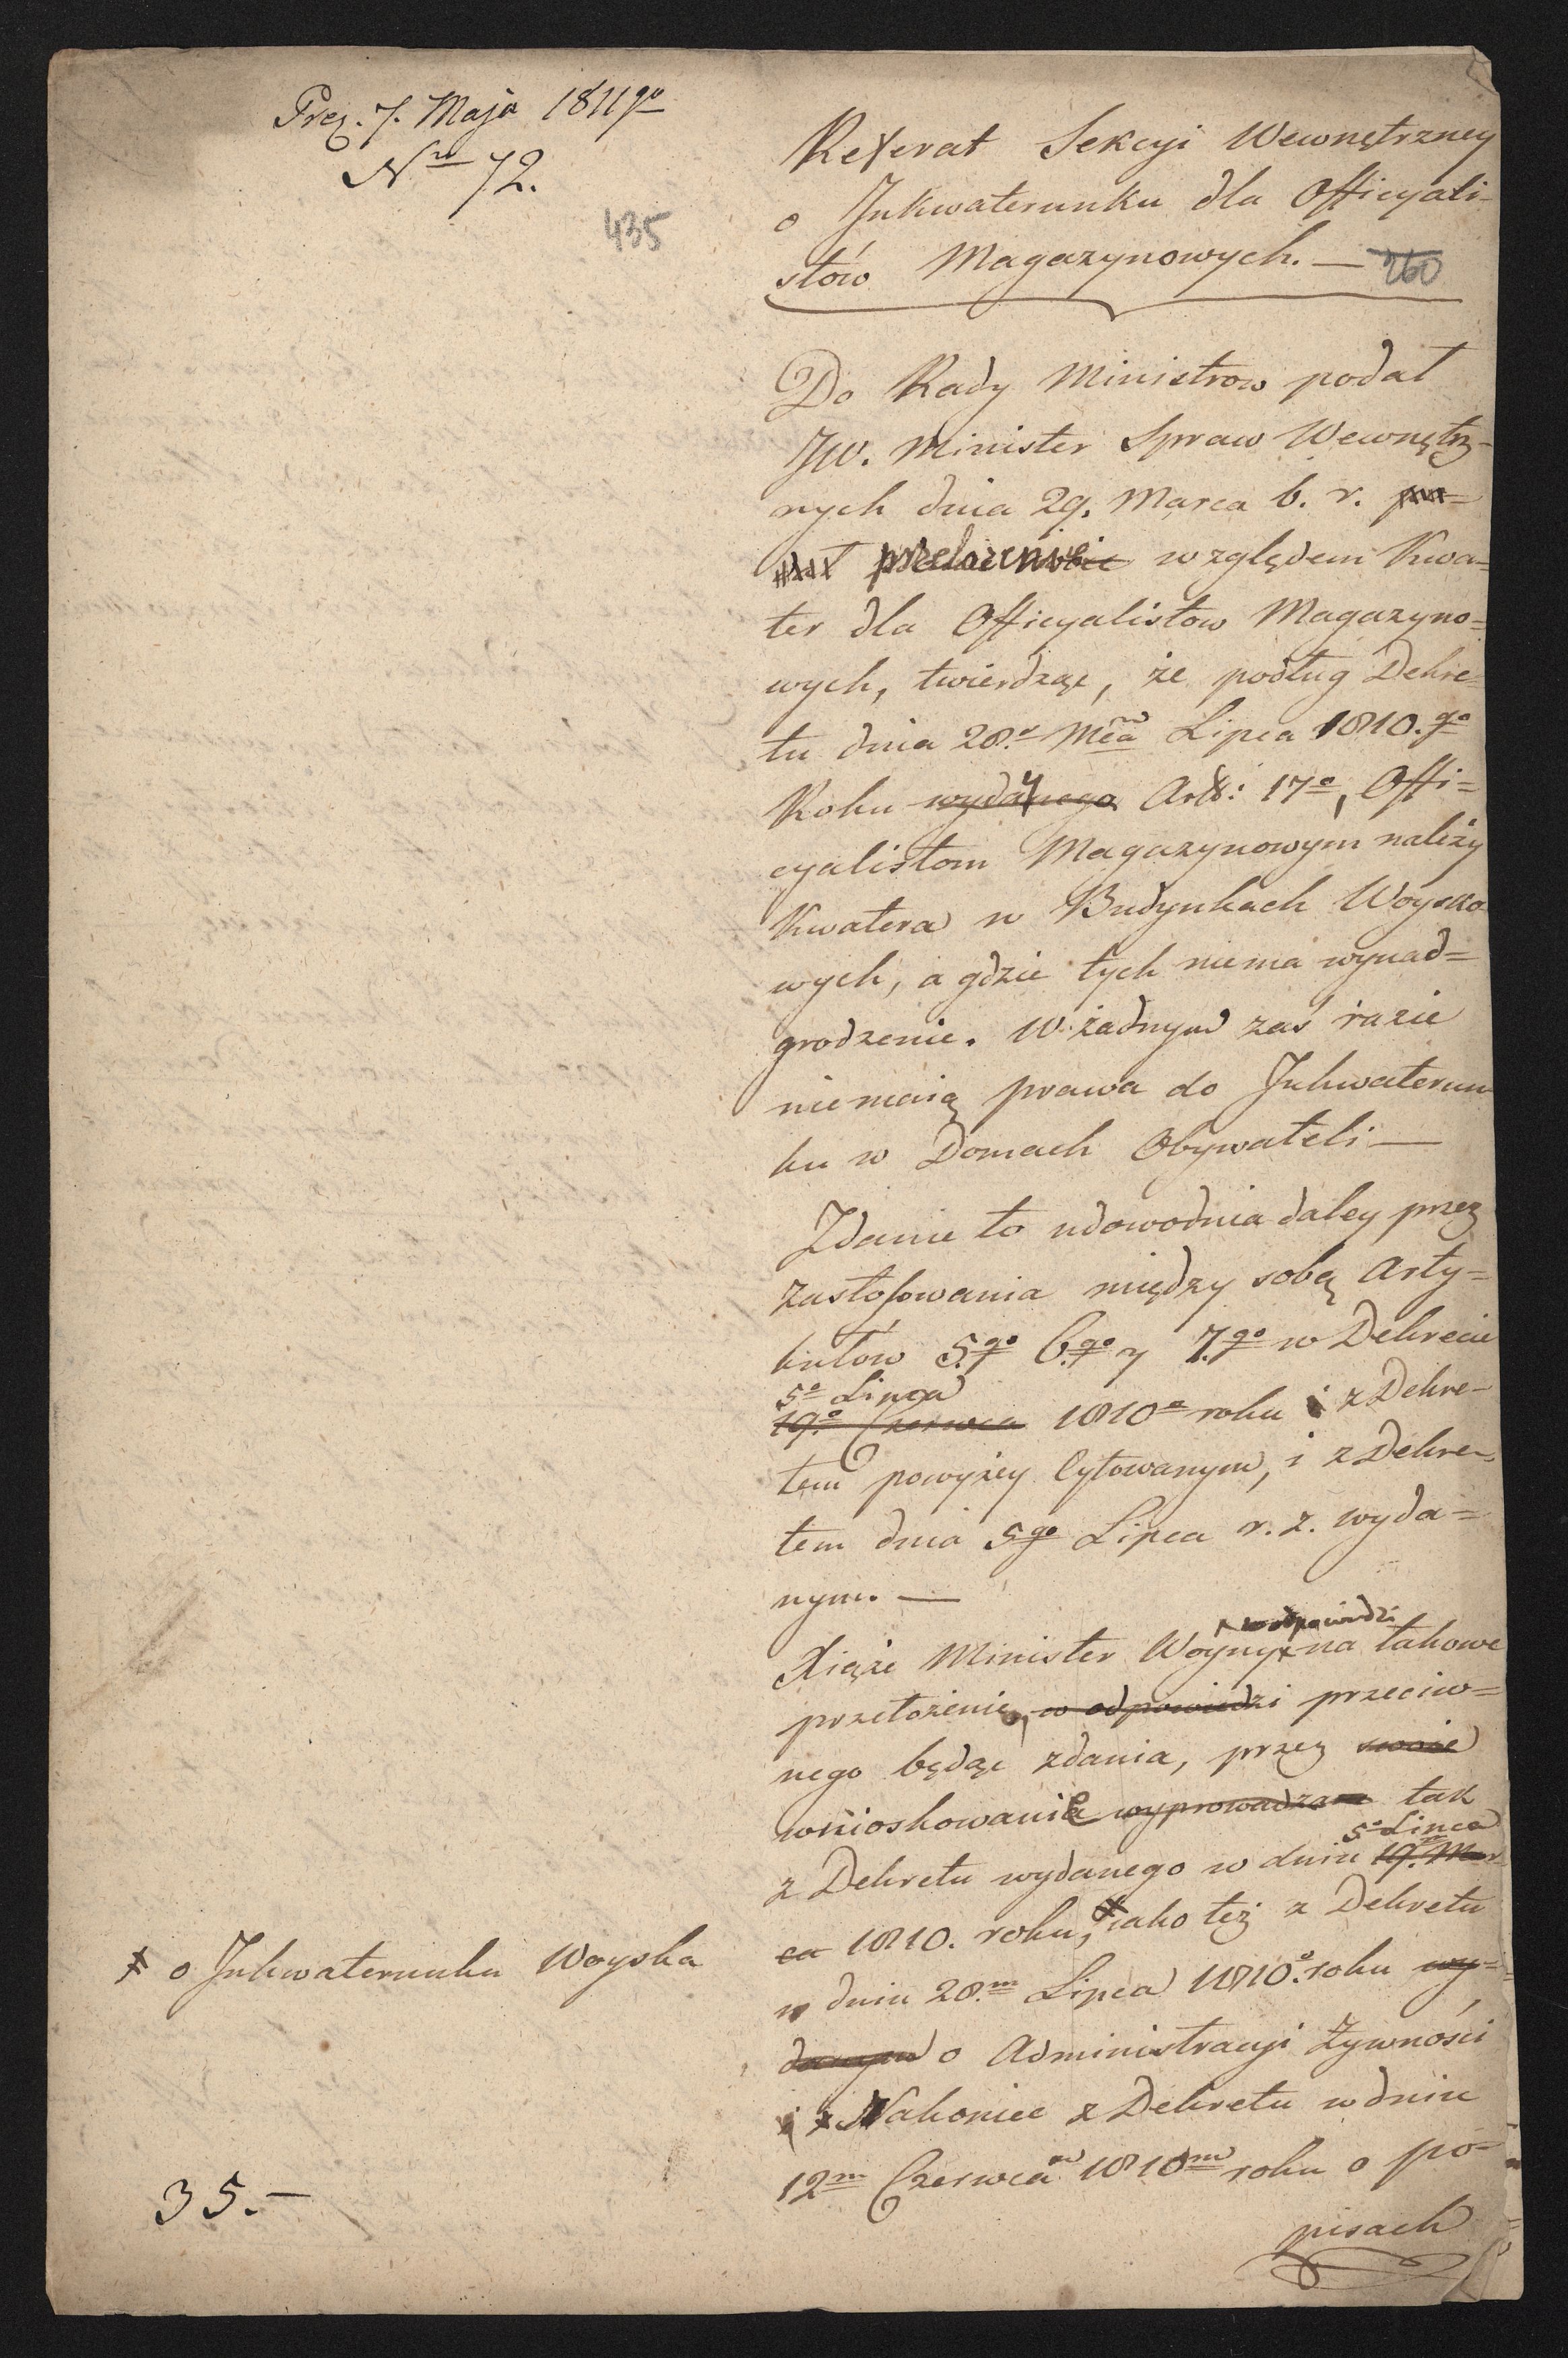 Prez. 7. Maja 1811go
Nro 72.
435
Referat Sekcyi Wewnętrzney
o Inkwaterunku dla Officyali-
stów Magazynowych. —
260
Do Rady Ministrow podał
JW. Minister Spraw Wewnętrz-
nych dnia 29. Marca b. r.
przełożenie względem Kwa=
ter dla Officyalistow Magazyno=
wych, twierdząc, że podług Dekre=
tu dnia 28.o Mca Lipca 1810.go
Roku wydanego Art: 17o, Offi=
cyalistom Magazynowym należy
Kwatera w Budynkach Woysko
wych, a gdzie tych niema wynad=
grodzenie. W żadnym zaś razie
niemaią prawa do Inkwaterun
ku w Domach Obywateli —
Zdanie to udowodnia daley przez
zastosowania między sobą Arty=
kułow 5.go 6.go y 7.go w Dekrecie
5o Lipca
19o Czerwca 1810o roku i z Dekre-
tem powyżey Cytowanym, i z Dekre-
tem dnia 5go Lipca r. z. wyda=
nym. —
w odpowiedzi
Xiąże Minister Woyny na takowe
przełożenie, w odpowiedzi przeciw=
nego będąc zdania, przez swoie
wnioskowanie wyprowadza tak
5o Lipca
z Dekretu wydanego w dniu 19. Mar
ca 1810. roku, iako też z Dekretu
x o Inkwaterunku Woyska
w dniu 28.m Lipca 1810.o roku wy=
danym o Administracyi Żywności
i z Nakoniec z Dekretu w dniu
12m Czerwca 1810m roku o po=
pisach
35.—